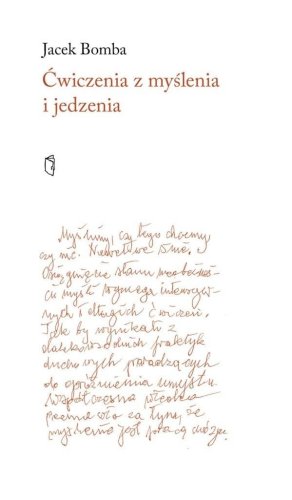 Jacek Bomba
Ćwiczenia z myślenia
i jedzenia
Myślimy, czy tego chcemy
czy nie. Niewątpliwie
Osiągnięcie stanu
myśli wymaga intensyw-
nych i długich ćwiczeń.
Jak by wynikało z
praktyk
duchowych prowadzących
do opróżnienia umysłu.
Współczesna wiedza
za tym, że
myślenie jest pracą mózgu.